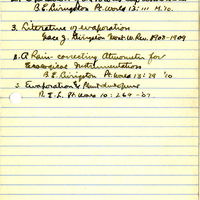 B.E. Livingston Pt. World 13: 111
3. Literature of evaporation
Grace J. Livingston Mont. W. Rev. 1908-1909
A Rain-correcting Atmometer for
Ecological Instrumentation
B.E. Livingston Pt. World 13: 79 '10
5. Evaporation & Plant development
B.E.L. Pt. World 10: 269 - '07